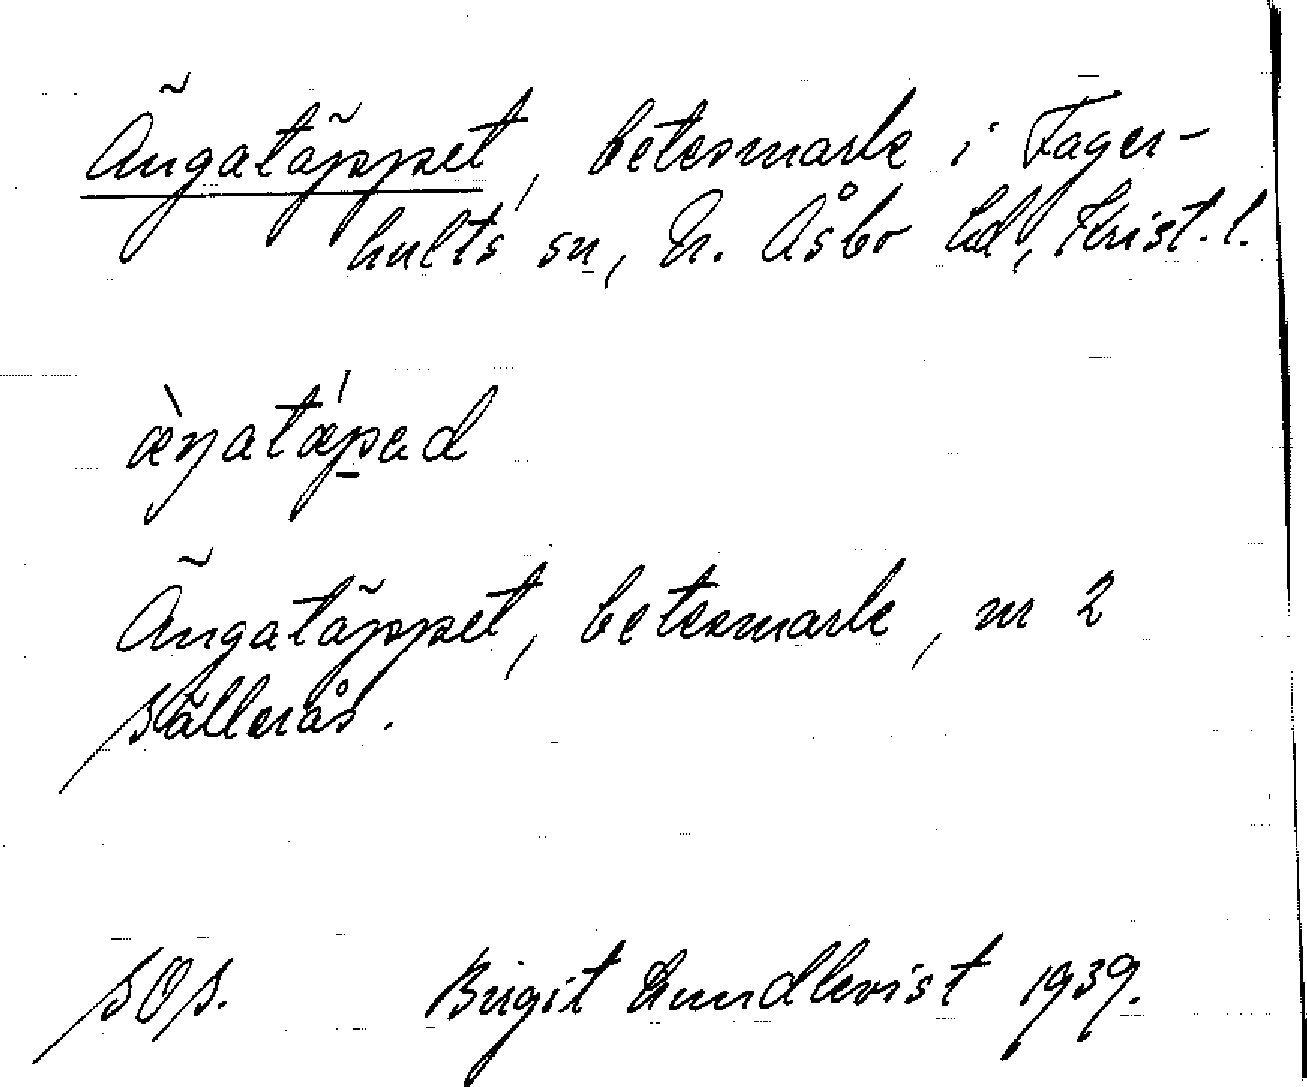 Ängatäppet, betesmark i Fager-
hults sn, N. Åsbo hd, Krist. l.
æ̀ŋatǽpad
Ängatäppet, betesmark, nr 2
Källerås.
SOS. Birgit Lundkvist 1939.